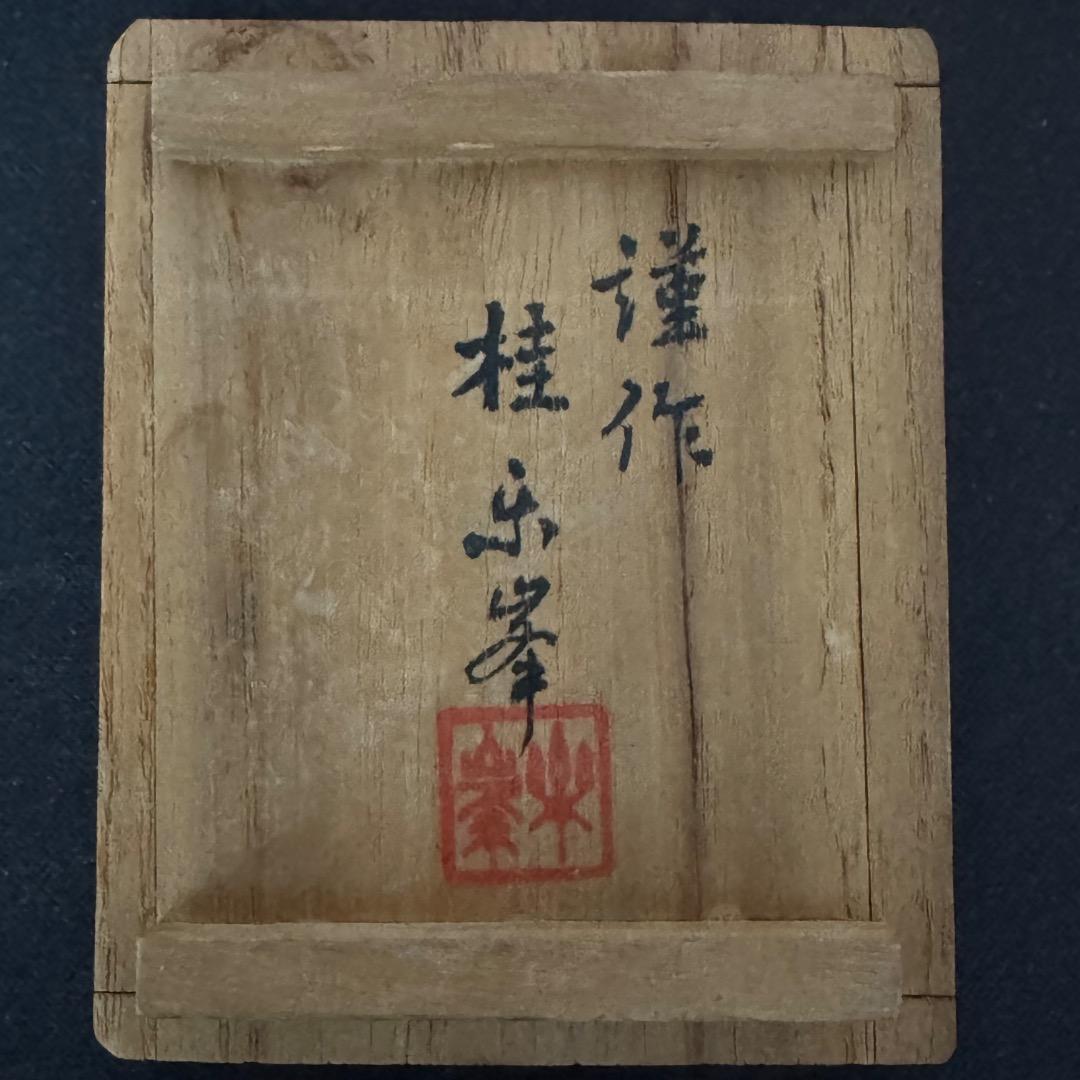 謹作
桂乐峯